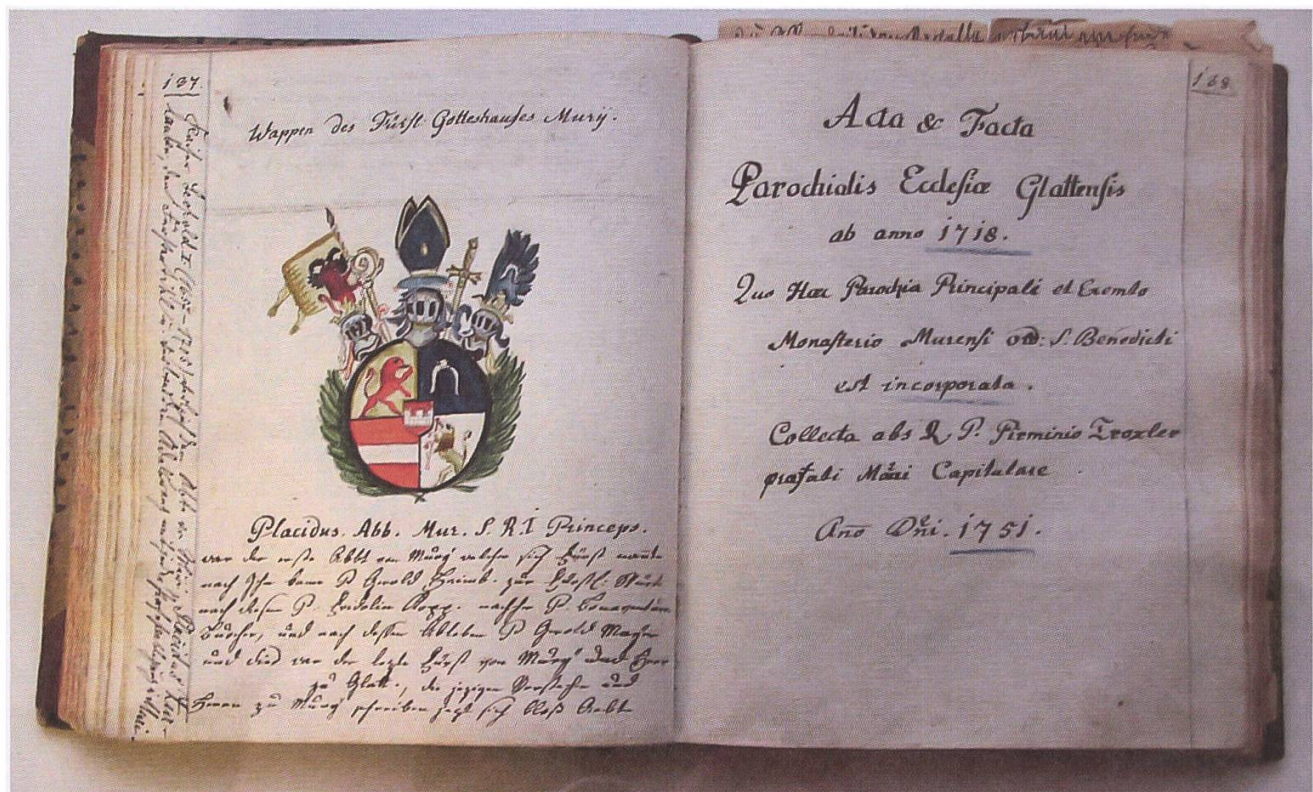 137.
Wappen des Fürstl: Gotteshauses Murÿ.
Placidus. Abb. Mur. S. R. I Princeps.
war der erste Abbt von Murÿ welcher sich Fürst nante
nach Ihm kame P Gerold Heimb. zur Fürstl: Würde
nach diesem P. Fridolin Kopp. nachher P. Bonaventura
Buocher, und nach dessen Ableben P Gerold Mayer
und dies war der lezte Fürst von Murÿ und Herr
zu Glatt., die jezigen Vorsteher und
Herren zu Murÿ schreiben jezt sich bloß Aebte
Kaiser Leopold I. den Abt von Muri, Placidus Zur-
lauben, den
138.
Acta & Facta
Parochialis Ecclesiæ Glattensis
ab anno 1718.
Quo Hæc Parochia Principali et Exempto
Monasterio Murensi ord: S. Benedicti
est incorporata.
Collecta abs R. P. Pirminio Troxler
præfati Mõrii Capitulare
Año Dñi. 1751.